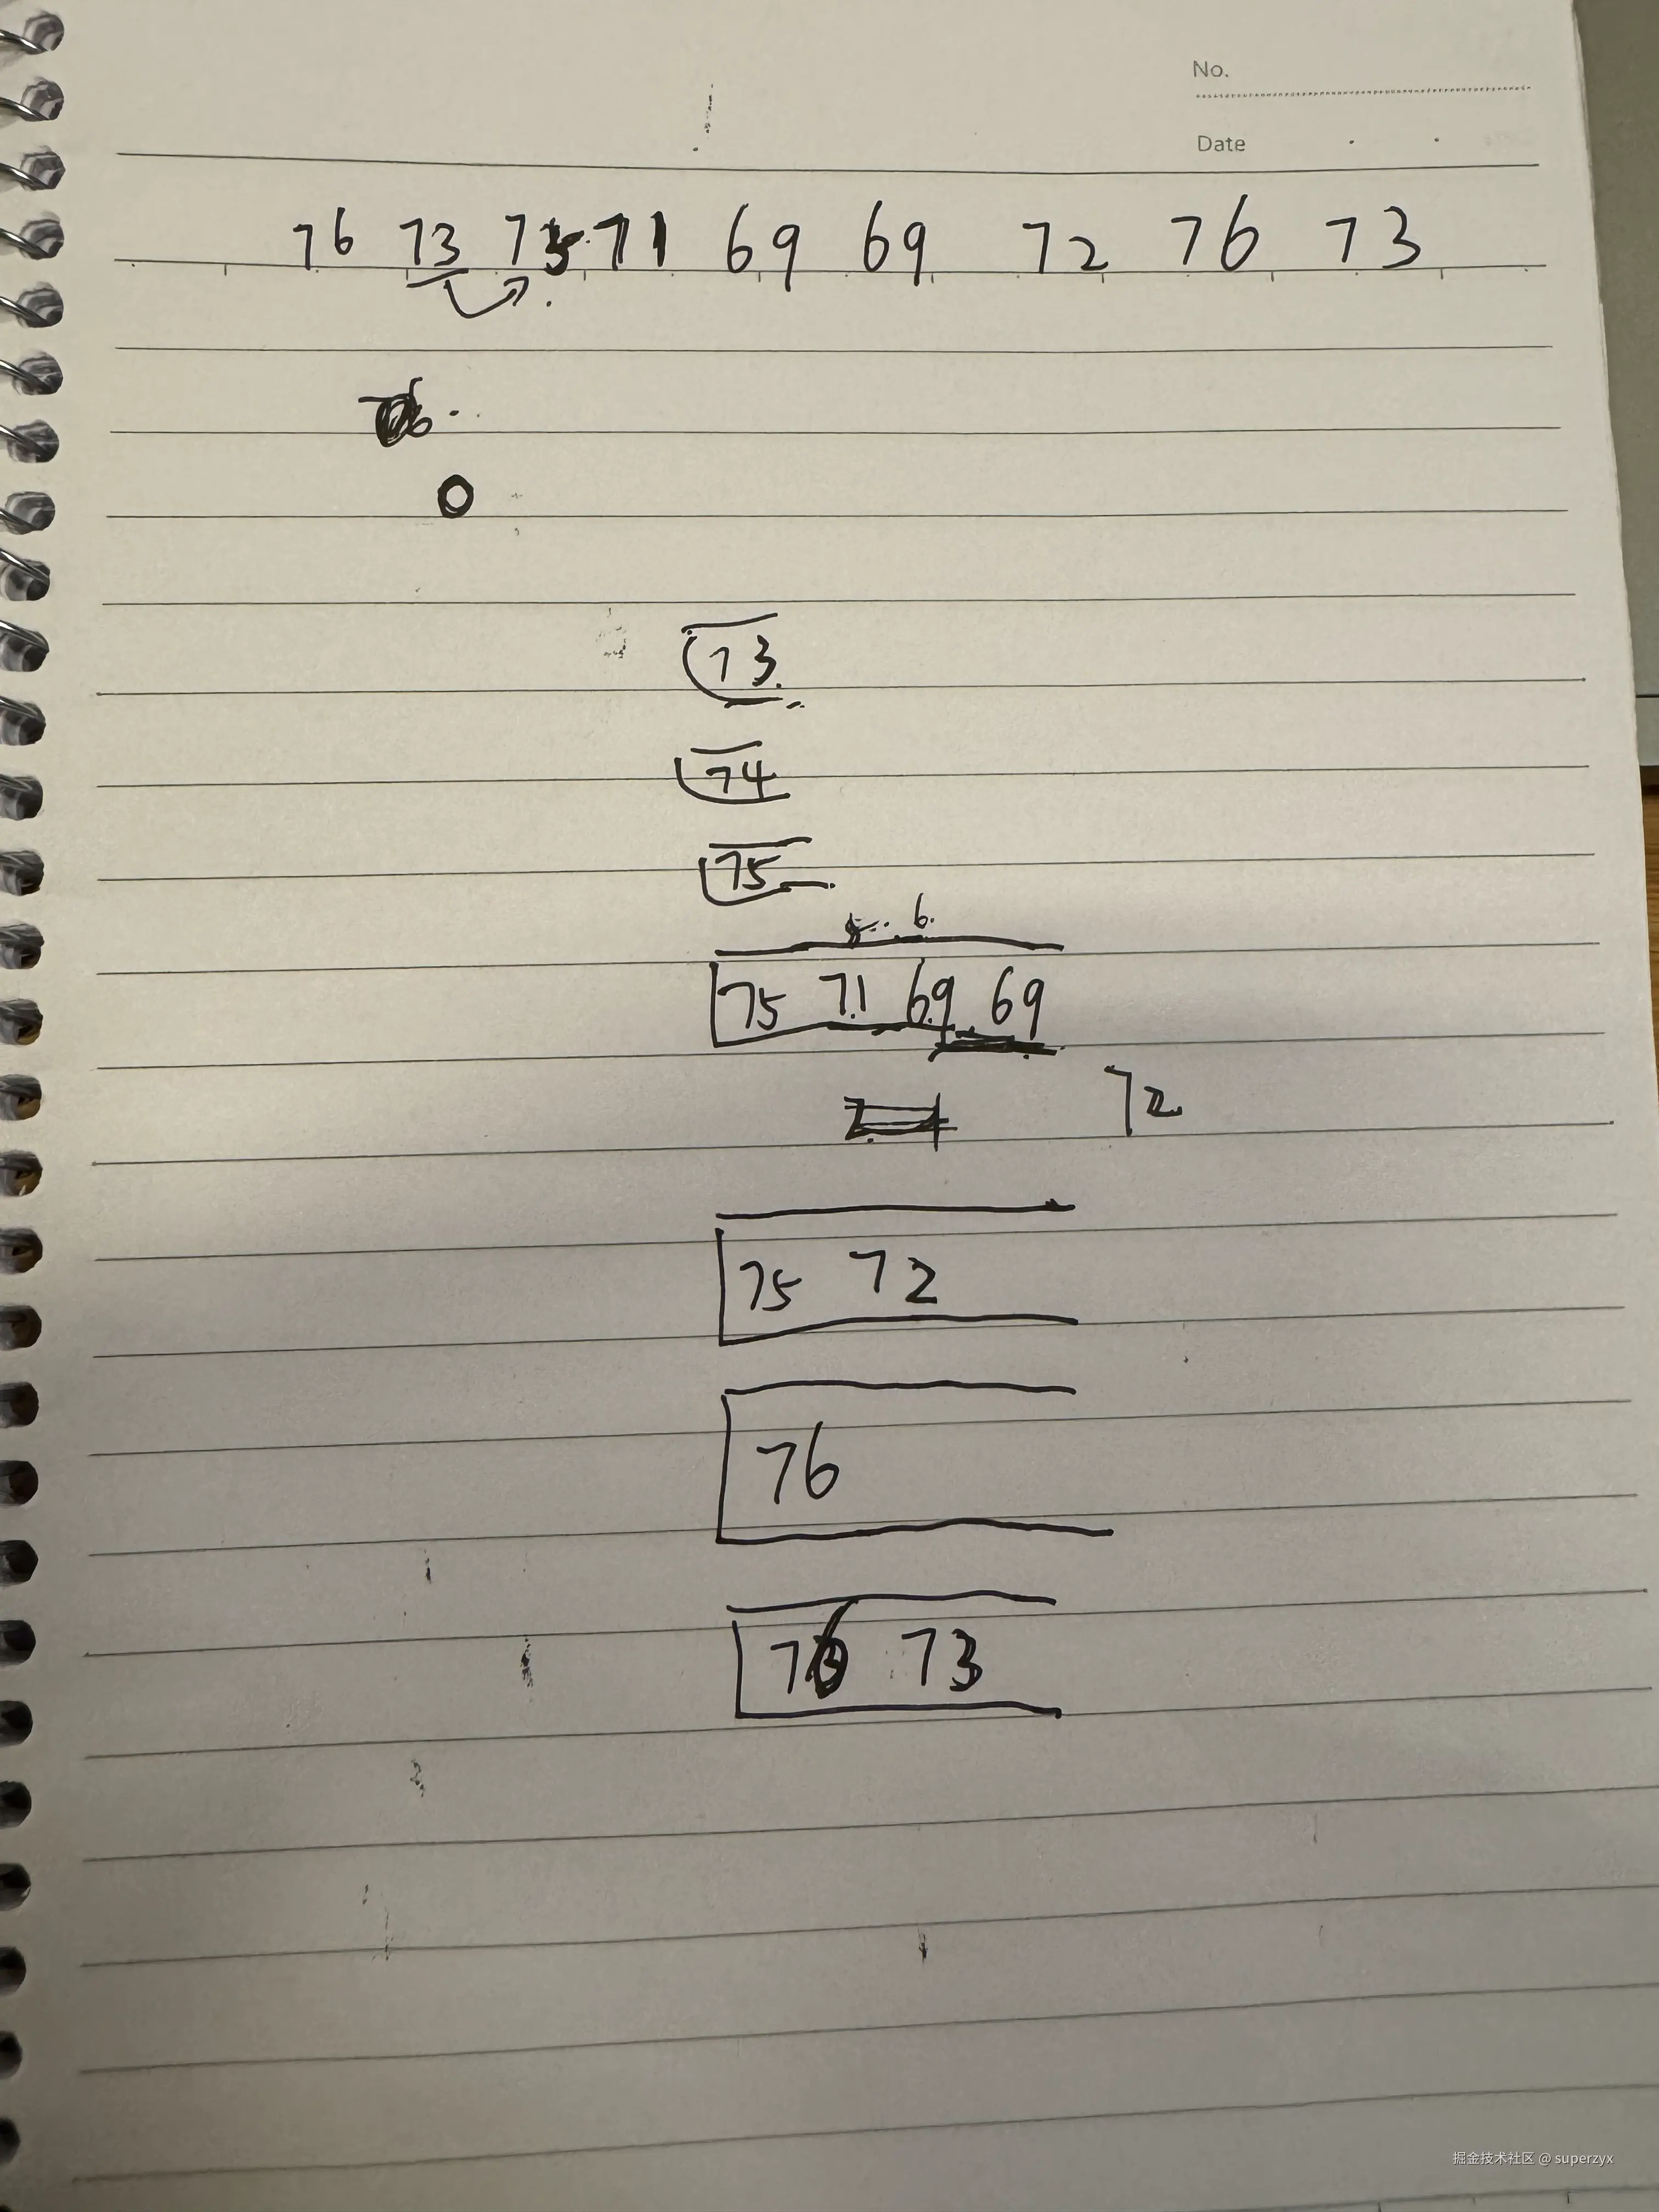 No.
Date
76 73 73 71 69 69 72 76 73
73
74
75
6
75 71 69 69
72
75 72
76
76 73
掘金技术社区 @ superzyx